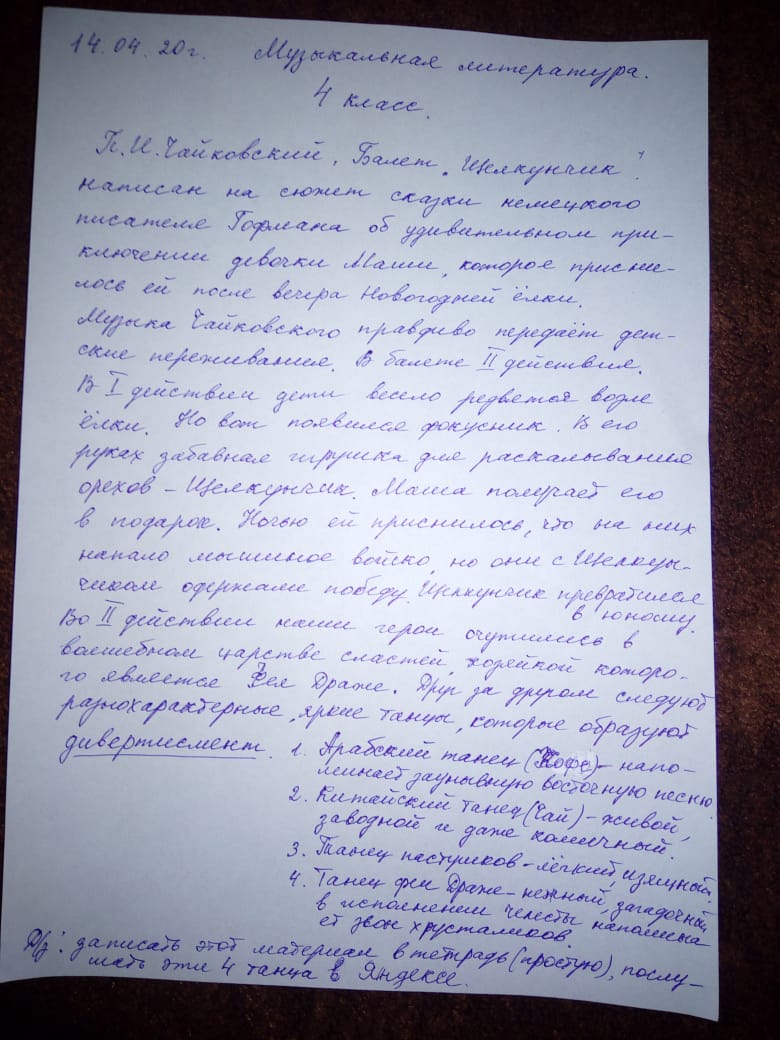 14.04.20г. Музыкальная литература.
4 класс.
П.И.Чайковский. Балет „Щелкунчик".
написан на сюжет сказки немецкого
писателя Гофмана об удивительном при-
ключении девочки Маши, которое приснил-
лось ей после вечера Новогодней ёлки.
Музыка Чайковского правдиво передаёт дет-
ские переживания. В балете II действия.
В I действии дети весело резвятся возле
ёлки. Но вот появился фокусник. В его
руках забавная игрушка для раскалывания
орехов – Щелкунчик. Маша получает его
в подарок. Ночью ей приснилось, что на них
напало мышиное войско, но они с Щелкун-
чиком одержали победу. Щелкунчик превратился
в юношу.
Во II действии наши герои очутились в
волшебном царстве сластей, хозяйкой которо-
го является Фея Драже. Друг за другом следуют
разнохарактерные, яркие танцы, которые образуют
дивертисмент.
1. Арабский танец (Кофе) – напо-
минает заунывную восточную песню
2. Китайский танец (Чай) – живой,
заводной и даже комичный.
3. Танец пастушков – лёгкий, изящный.
4. Танец феи Драже – нежный, загадочный
в исполнении челесты напомина
ет звон хрусталиков.
Д/з: записать этот материал в тетрадь (простую), послу-
шать эти 4 танца в Яндексе.